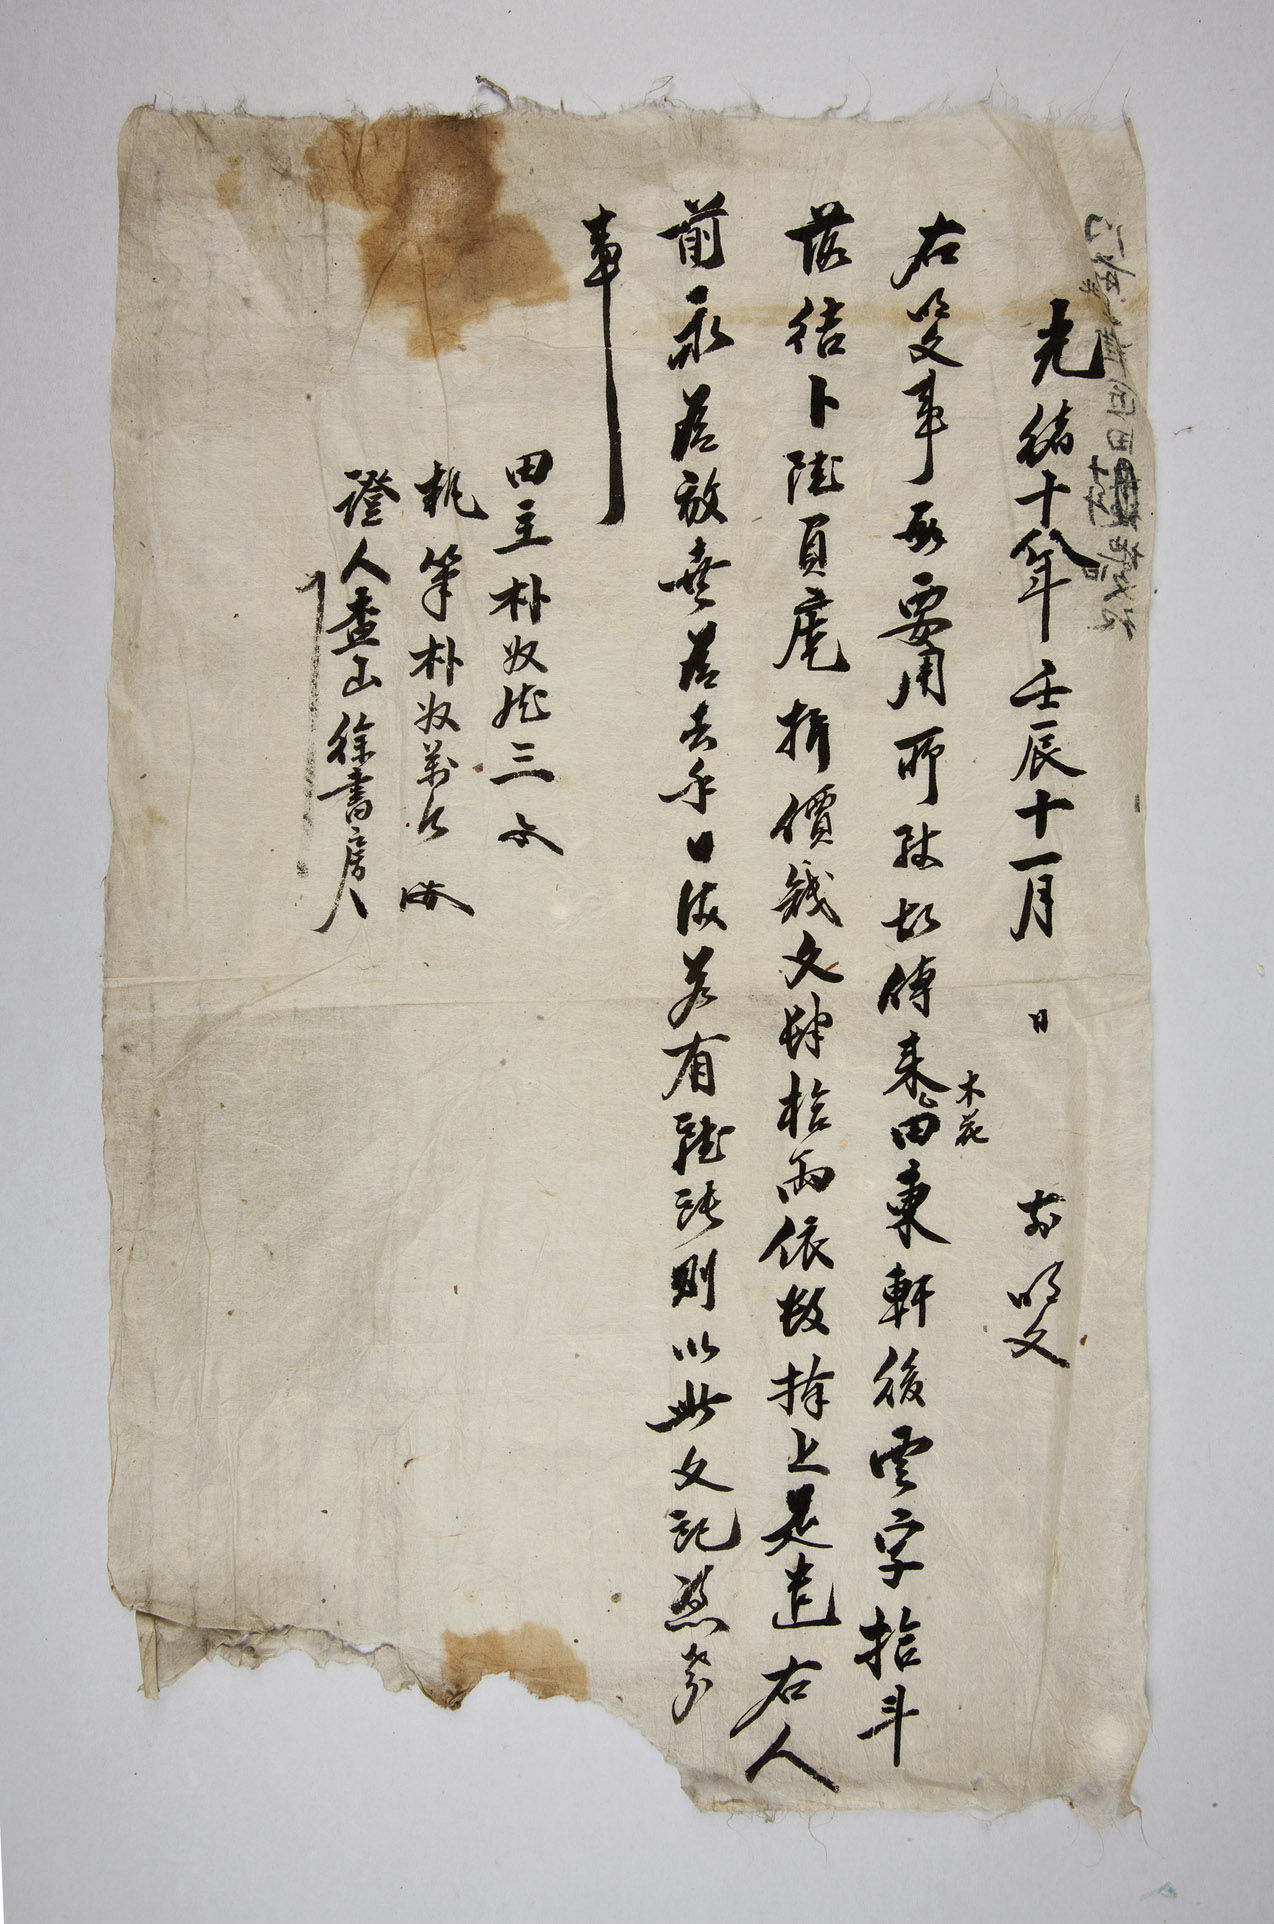 光緒十八年壬辰十一月 日 前明文
右明文事段要用所致故傳來畓田東軒後雲字拾斗
木花
落結卜陸負庫折價錢文肆拾兩依數捧上是遣右人
前永爲放賣爲去乎日後若有雜談則以此文記憑考
事
田主朴奴三
執筆朴奴萬
證人盃山徐書房